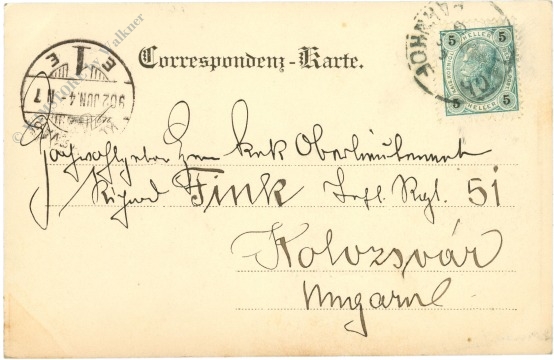 Correspondenz-Karte.
5 5
HELLER HELLER
5 5
902 JUN. 4
E 1 E
Falkner
Hochwohlgeboren Herrn k.u.k. Oberlieutenant
Richard Fink Inft. Rgt. 51
Kolozsvár
Ungarn